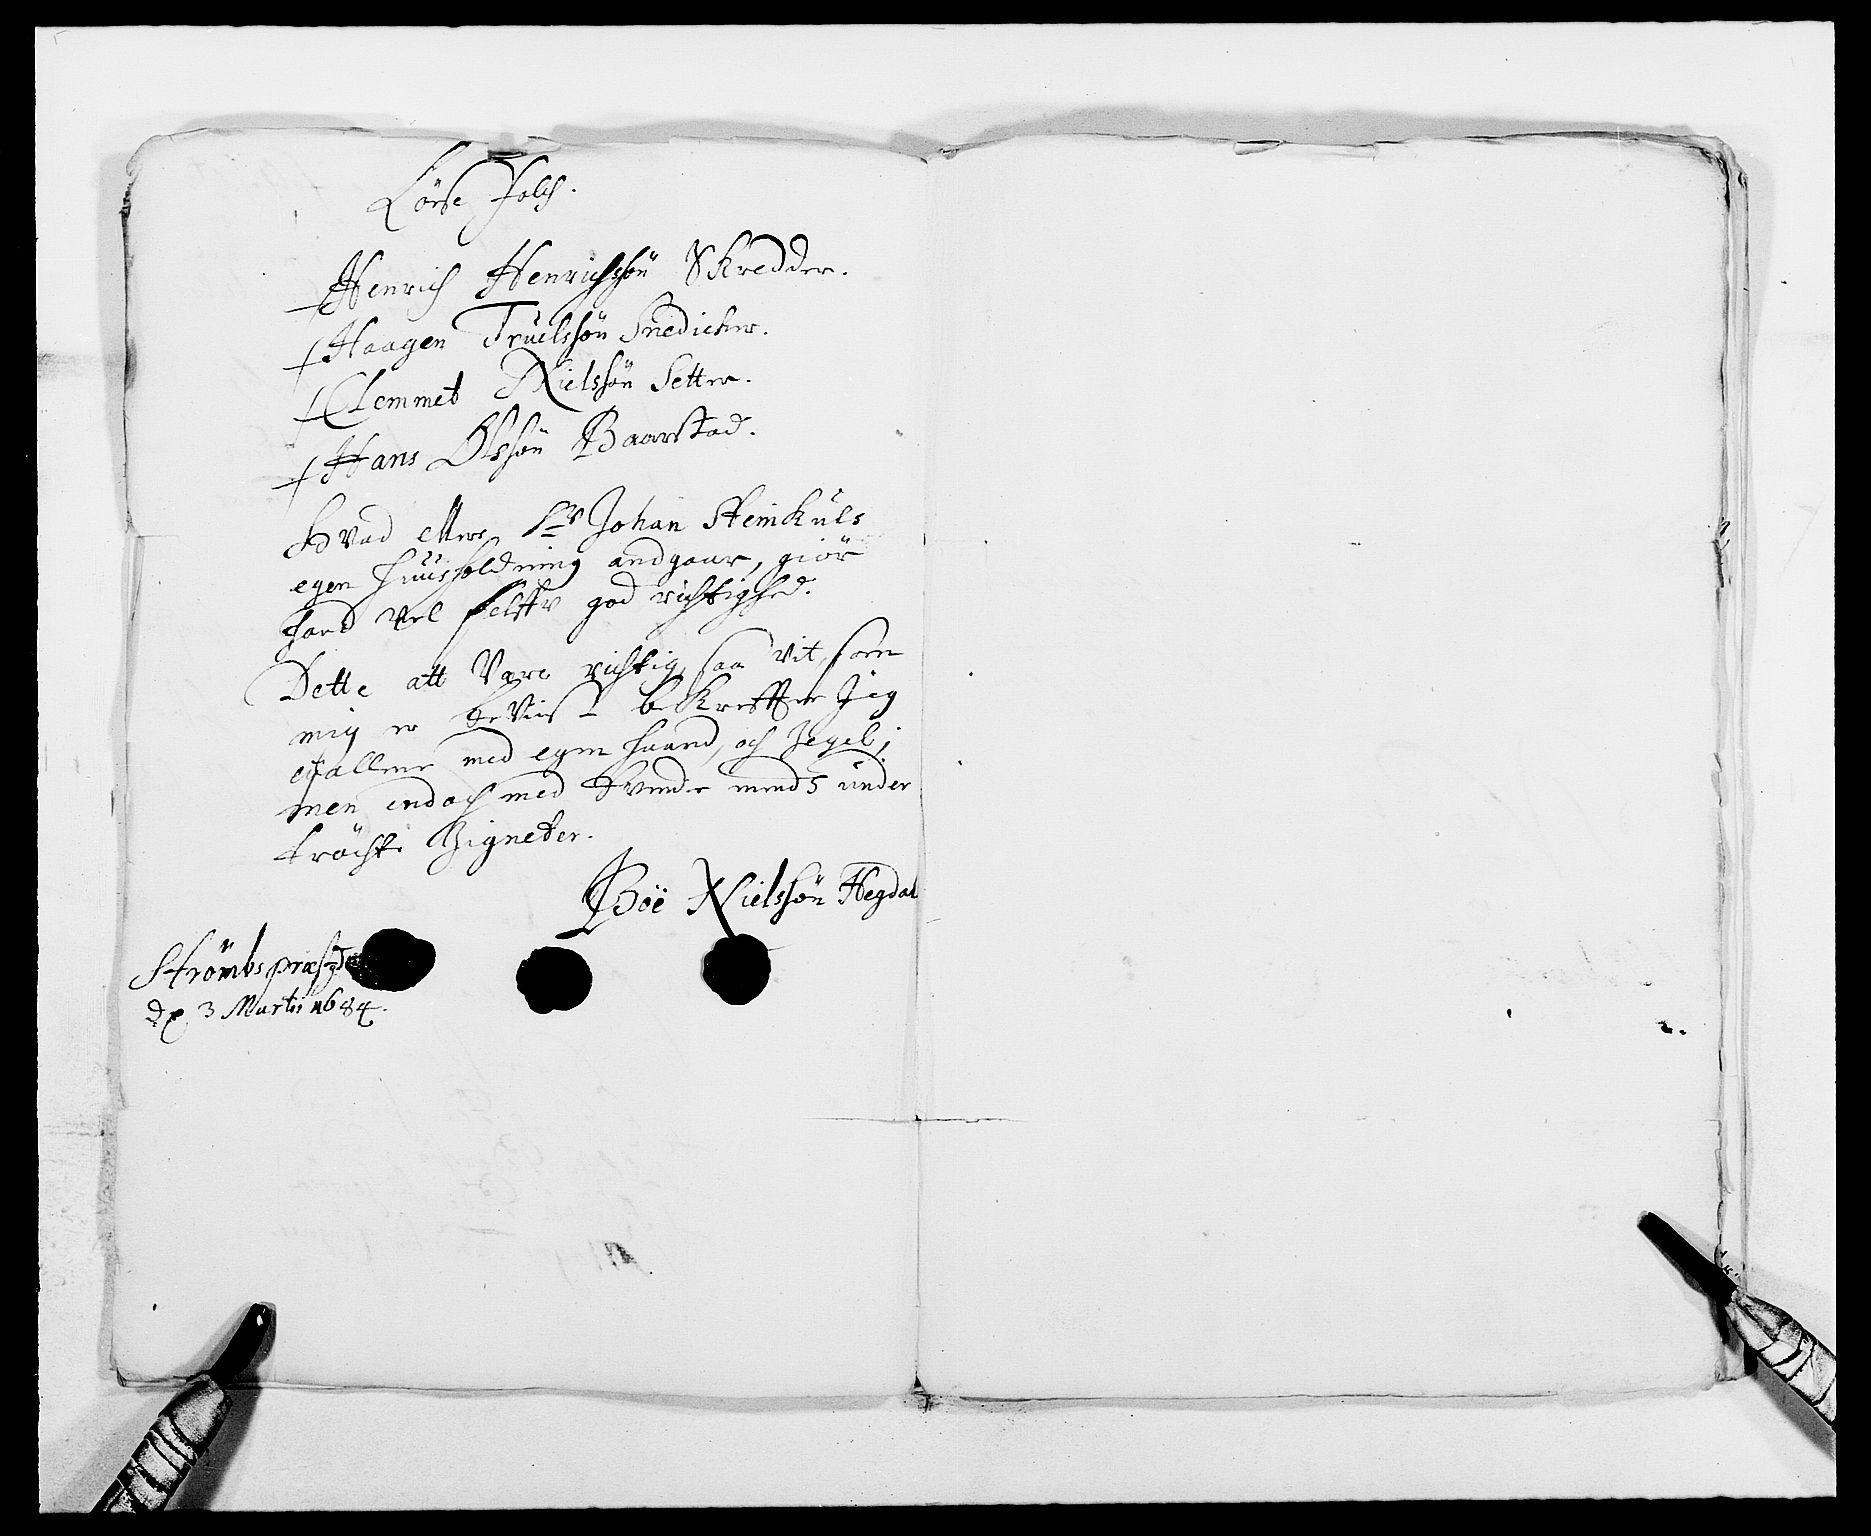 Lörse Folch.
Henrich Henrichssön Skredder.
Haagen Truelssön Snedicher.
Clemmet Nielssön Setter.
Hans Olssön Baarstad.
Hvad ellers Sr Johan Steinkuls
egen huusholdning andgaar, giör
hand vel selffv god richtighed.
Dette att Være richtig, saa vit som
mig er beviist bekreffter Jeg
med egen haand, och Zegel;
men endoch med tvende mends under
tröchte Zigneter.
Boë Nielssön Hegdal
Strömbs præstgd
de 3 Marti 1684.